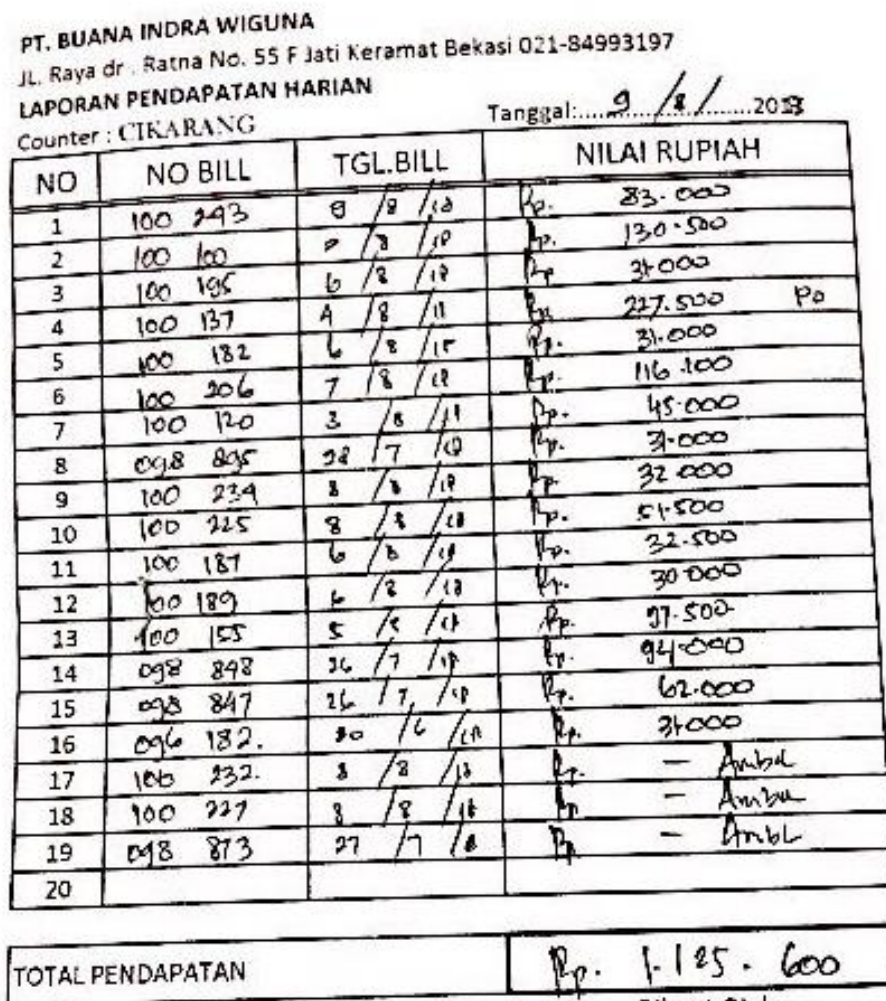 PT. BUANA INDRA WIGUNA
JL. Raya dr . Ratna No. 55 F Jati Keramat Bekasi 021-84993197
LAPORAN PENDAPATAN HARIAN
Counter : CIKARANG Tanggal:.....9/8/......20
NO NO BILL TGL.BILL NILAI RUPIAH
1 100 243 9/8/18 Rp. 83.000
2 100 100 /8/18 Rp. 130.500
3 100 195 6/8/18 Rp 31.000
4 100 137 4/8/18 Rp 227.500 Po
5 100 182 6/8/18 Rp. 31.000
6 100 206 7/8/18 Rp. 116.100
7 100 120 3/8/18 Rp. 45.000
8 098 895 28/7/18 Rp. 31.000
9 100 234 8/8/18 Rp. 32.000
10 100 225 8/8/18 Rp. 51.500
11 100 187 6/8/18 Rp. 32.500
12 100 189 6/8/18 Rp. 30.000
13 100 155 5/8/18 Rp. 97.500
14 098 848 26/7/18 Rp. 94.000
15 098 847 26/7/18 Rp. 62.000
16 096 182. /6/18 Rp. 31.000
17 100 232. 8/8/18 Rp. -
18 100 227 8/8/18 Rp -
19 098 873 27/7/18 Rp -
20
TOTAL PENDAPATAN Rp. 1.125.600